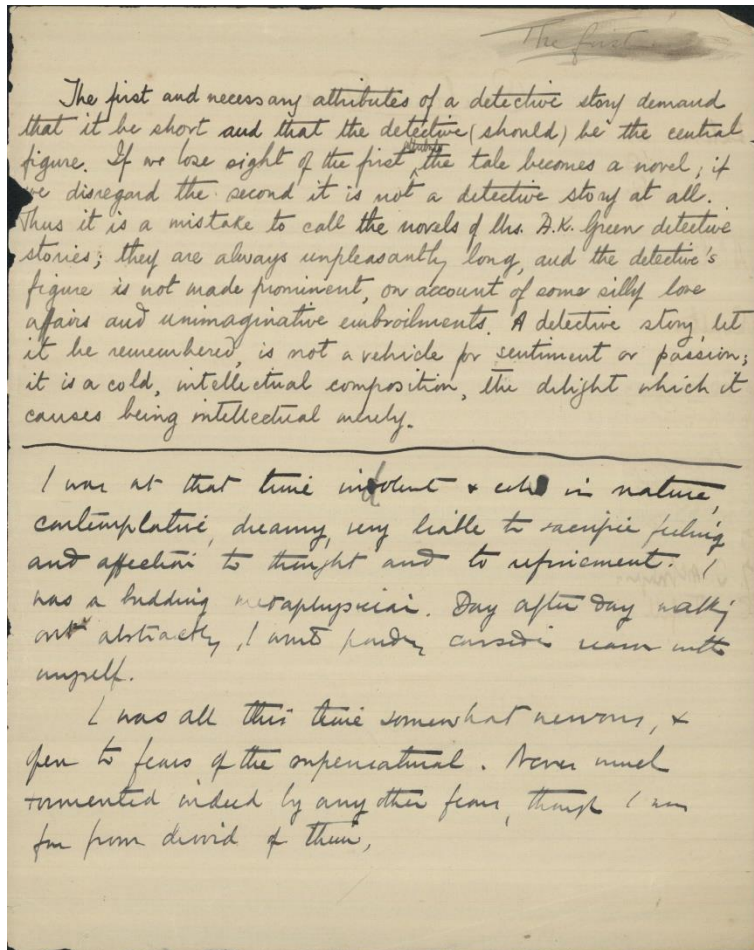 The first
The first and necessary attributes of a detective story demand
that it be short and that the detective (should) be the central
figure. If we lose sight of the first attribute, the tale becomes a novel; if
we disregard the second it is not a detective story at all.
Thus it is a mistake to call the novels of Mrs. A.K. Green detective
stories; they are always unpleasantly long, and the detective's
figure is not made prominent, on account of some silly love
affairs and unimaginative embroilments. A detective story, let
it be remembered, is not a vehicle for sentiment or passion;
it is a cold, intellectual composition, the delight which it
causes being intellectual merely.
I was at that time indolent & cold in nature,
contemplative, dreamy, very liable to sacrifice feeling
and affection to thought and to refinement. I
was a budding metaphysician. Day after day walking
out abstractly, I went reason with
myself.
I was all this time somewhat nervous, &
open to fears of the supernatural. Never much
tormented indeed by any other fears, though I was
far from devoid of them,